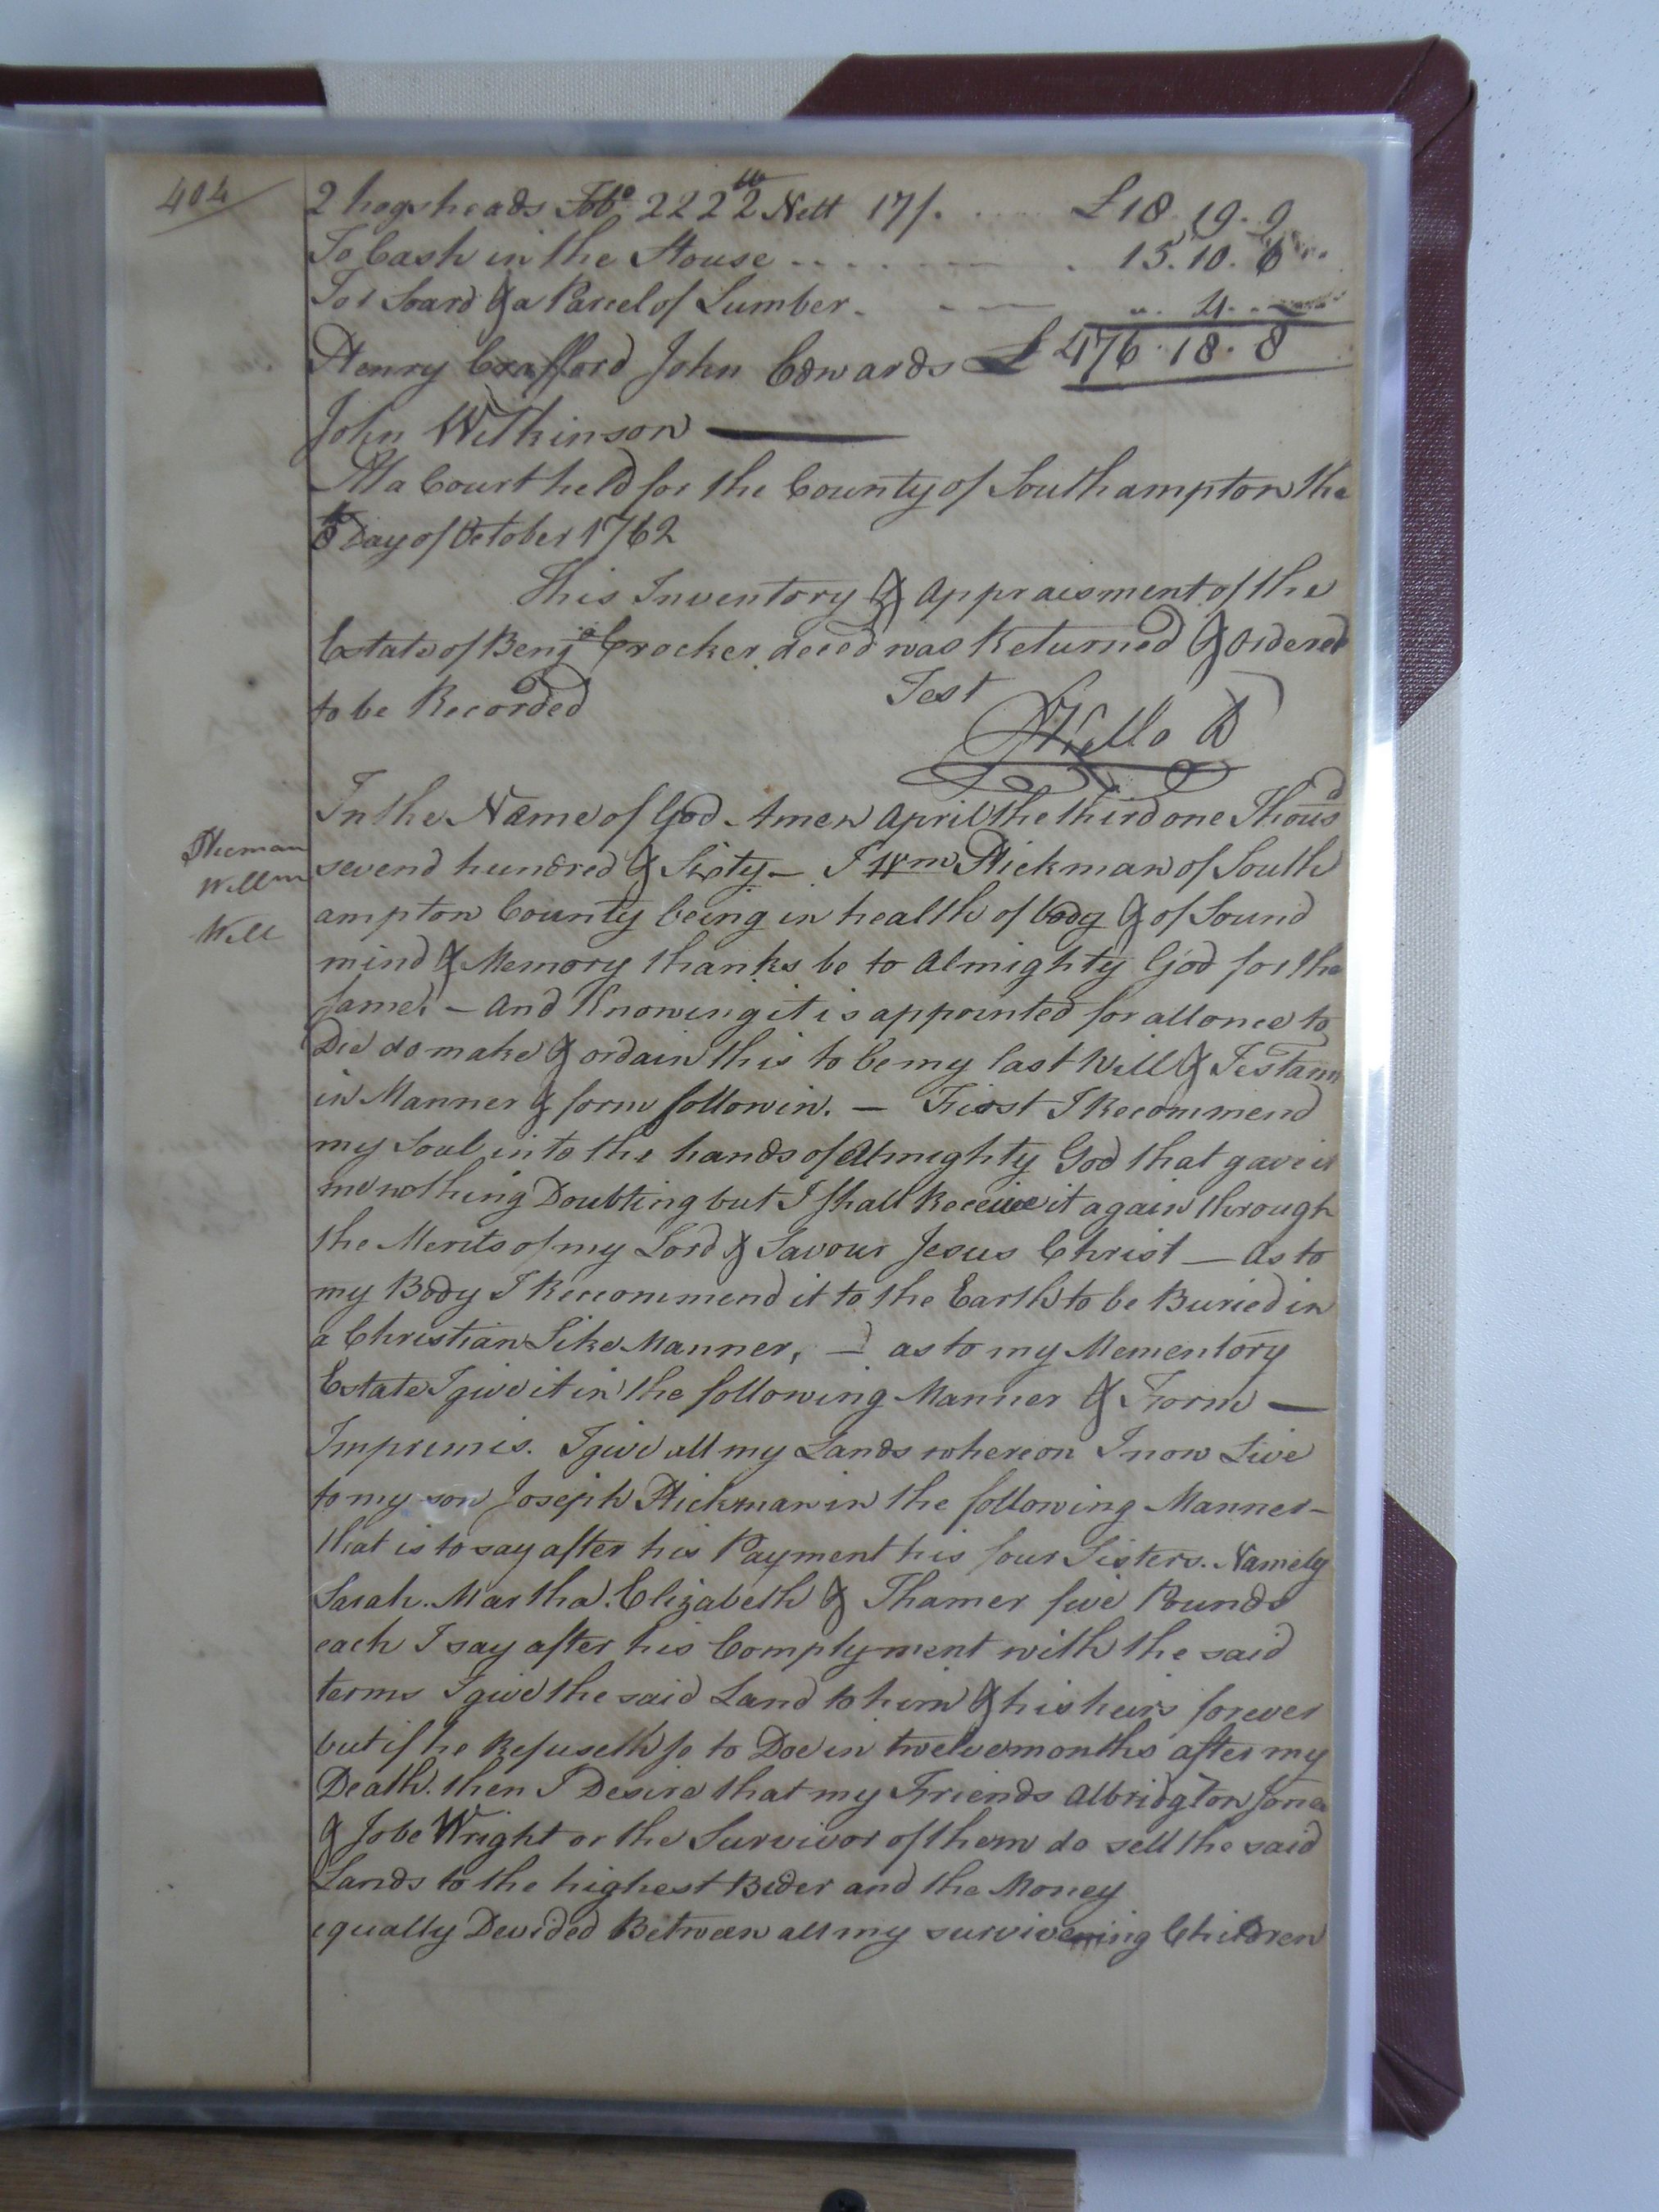 404
2 hogsheads Tobo 2222 lb Nett 17/. £18.19.9
To Cash in the House 15.10.6
To 1 board & a Parcel of Lumber 4
Henry Crafford John Edwards £476.18.8
John Wilkinson
At a Court held for the County of Southampton the
th Day of October 1762
This Inventory & appraisment of the
Estate of Benja Crocker deced was Returned & Ordered
to be Recorded Test
In the Name of God Amen April the third one Thousd
Hicman
sevend hundred & Sixty - I Wm Hickman of South
Willm
ampton County being in health of body & of Sound
Will
mind & Memory thanks be to almighty God for the
same. - and Knowing it is appointed for all once to
Die do make & ordain this to be my last Will & Testam
in Manner & form followin. - First I Recommend
my Soul into the hands of almighty God that gave it
me nothing Doubting but I shall Receive it again through
the Merits of my Lord & Savour Jesus Christ - as to
my Body I Reccommend it to the Earth to be Buried in
a Christian Like Manner, - as to my Mementory
Estate I give it in the following Manner & Form -
Imprimis. I give all my Lands whereon I now Live
to my son Joseph Hickman in the following Manner -
that is to say after his Payment his four Sisters. Namely
Sarah. Martha. Elizabeth & Thamer five Pounds
each I say after his Complyment with the said
terms I give the said Land to him & his heirs forever
but if he Refuseth so to Doe in twelve months after my
Death. then I Desire that my Friends Albridgton Jones
& Jobe Wright or the Survivor of them do sell the said
Lands to the highest Bider and the Money
equally Devided Between all my surviveing Children